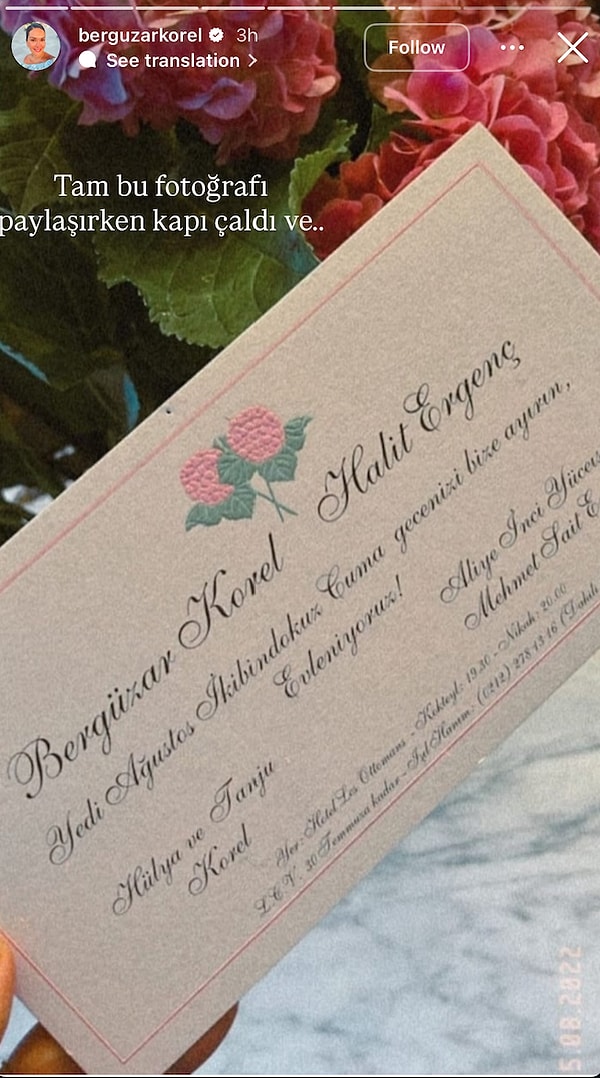 berguzarkorel 3h
See translation >
Follow
Tam bu fotoğrafı
paylaşırken kapı çaldı ve..
Bergüzar Korel Halit Ergenç
Yedi Ağustos İkibindokuz Cuma gecenizi bize ayırın,
Evleniyoruz!
Hülya ve Tanju
Korel
Aliye İnci
Mehmet Sait
Yer: Hotel Les Ottomans - Kokteyl: 19.30 - Nikah: 20.00
L.C.V. 30 Temmuza kadar - Işıl Hanım: (0212) 278 13 16
5 08.2022